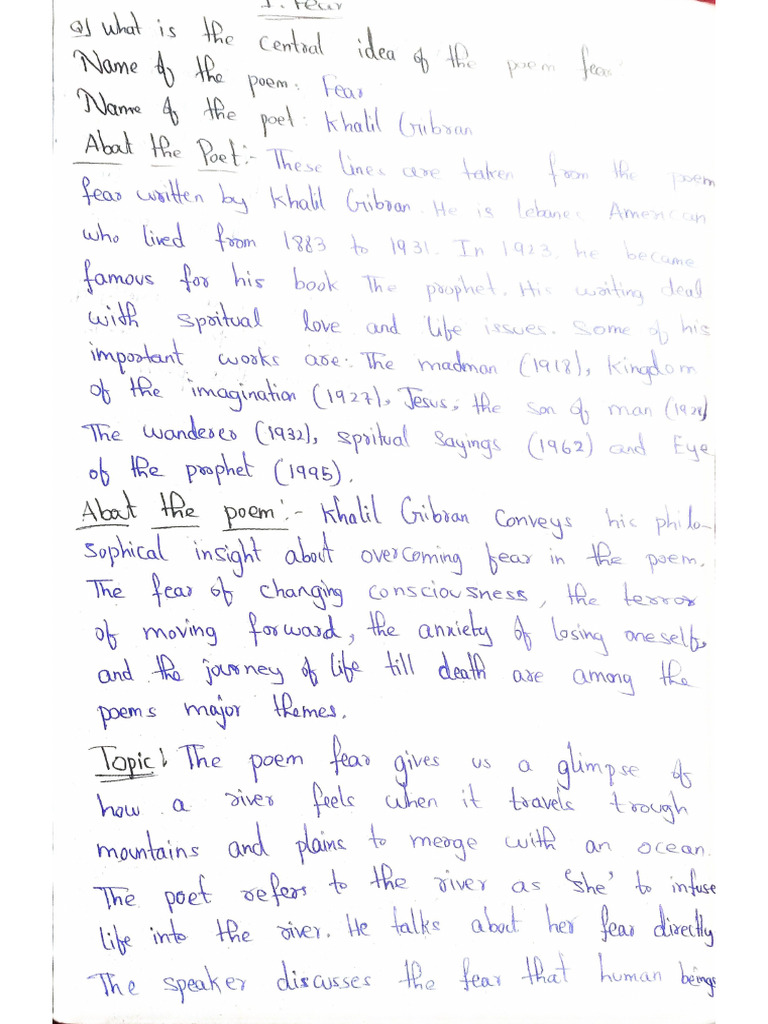 1. Fear
Q) What is the central idea of the poem fear
Name of the poem: Fear
Name of the poet: Khalil Gibran
Abot the Poet:- These lines are taken from the poem
fear written by Khalil Gibran. He is Lebanes American
who lived from 1883 to 1931. In 1923. he became
famous for his book The prophet. His writing deal
with spritual love and life issues. Some of his
important works are: The madman (1918), Kingdom
of the imagination (1927), Jesus, the son of man (1928)
The wanderer (1932), spritual sayings (1962) and Eye
of the prophet (1995).
Abot the poem:- Khalil Gibran conveys his philo-
sophical insight about overcoming fear in the poem.
The fear of changing consciousness, the terror
of moving forward, the anxiety of losing oneself,
and the journey of life till death are among the
poems major themes.
Topic: The poem fear gives us a glimpse of
how a river feels when it travels trough
mountains and plains to merge with an ocean.
The poet refers to the river as 'she' to infuse
life into the river. He talks about her fear directly
The speaker discusses the fear that human beings